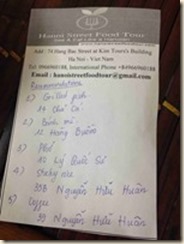 Hanoi Street Food Tour
Add : 74 Hang Bac Street at Kim Tours's Building
Ha Noi - Viet Nam
Email : hanoistreetfoodtour@gmail.com
Recommendations
1) Grilled fish
14 Chả Cá
2) Bánh mì
12 Hàng Buồm
3) Phở
10 Lý Quốc Sư
4) Sticky rice
35B Nguyễn Hữu Huân
5) Coffee
Nguyễn Hữu Huân